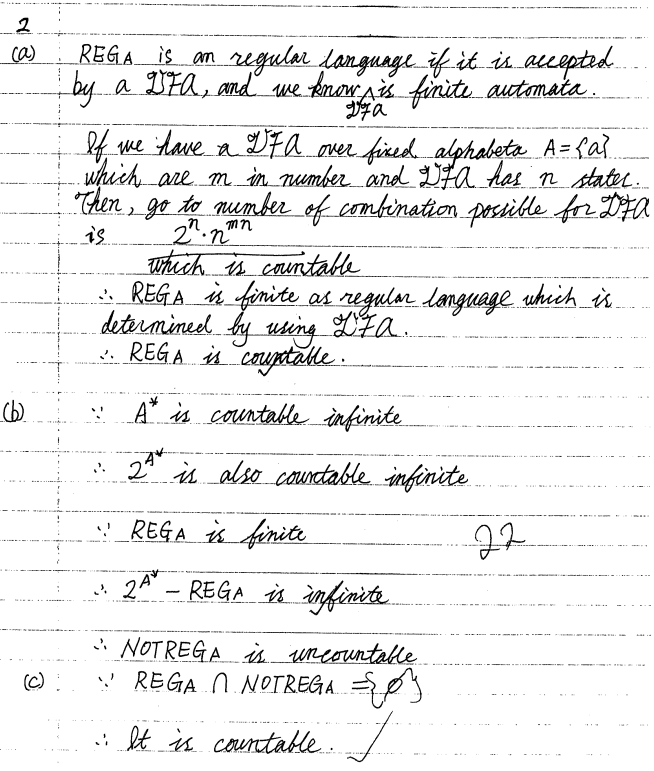 2
(a) REGA is an regular language if it is accepted
by a DFA, and we know DFA is finite automata.
If we have a DFA over fixed alphabeta A={a}
which are m in number and DFA has n states.
Then, go to number of combination possible for DFA
is 2^n · n^mn
which is countable
∴ REGA is finite as regular language which is
determined by using DFA.
∴ REGA is countable.
(b) ∵ A* is countable infinite
∴ 2^A* is also countable infinite
∵ REGA is finite
22
∴ 2^A* – REGA is infinite
∴ NOTREGA is uncountable
(c) ∵ REGA ∩ NOTREGA = {ø}
∴ It is countable. ✓